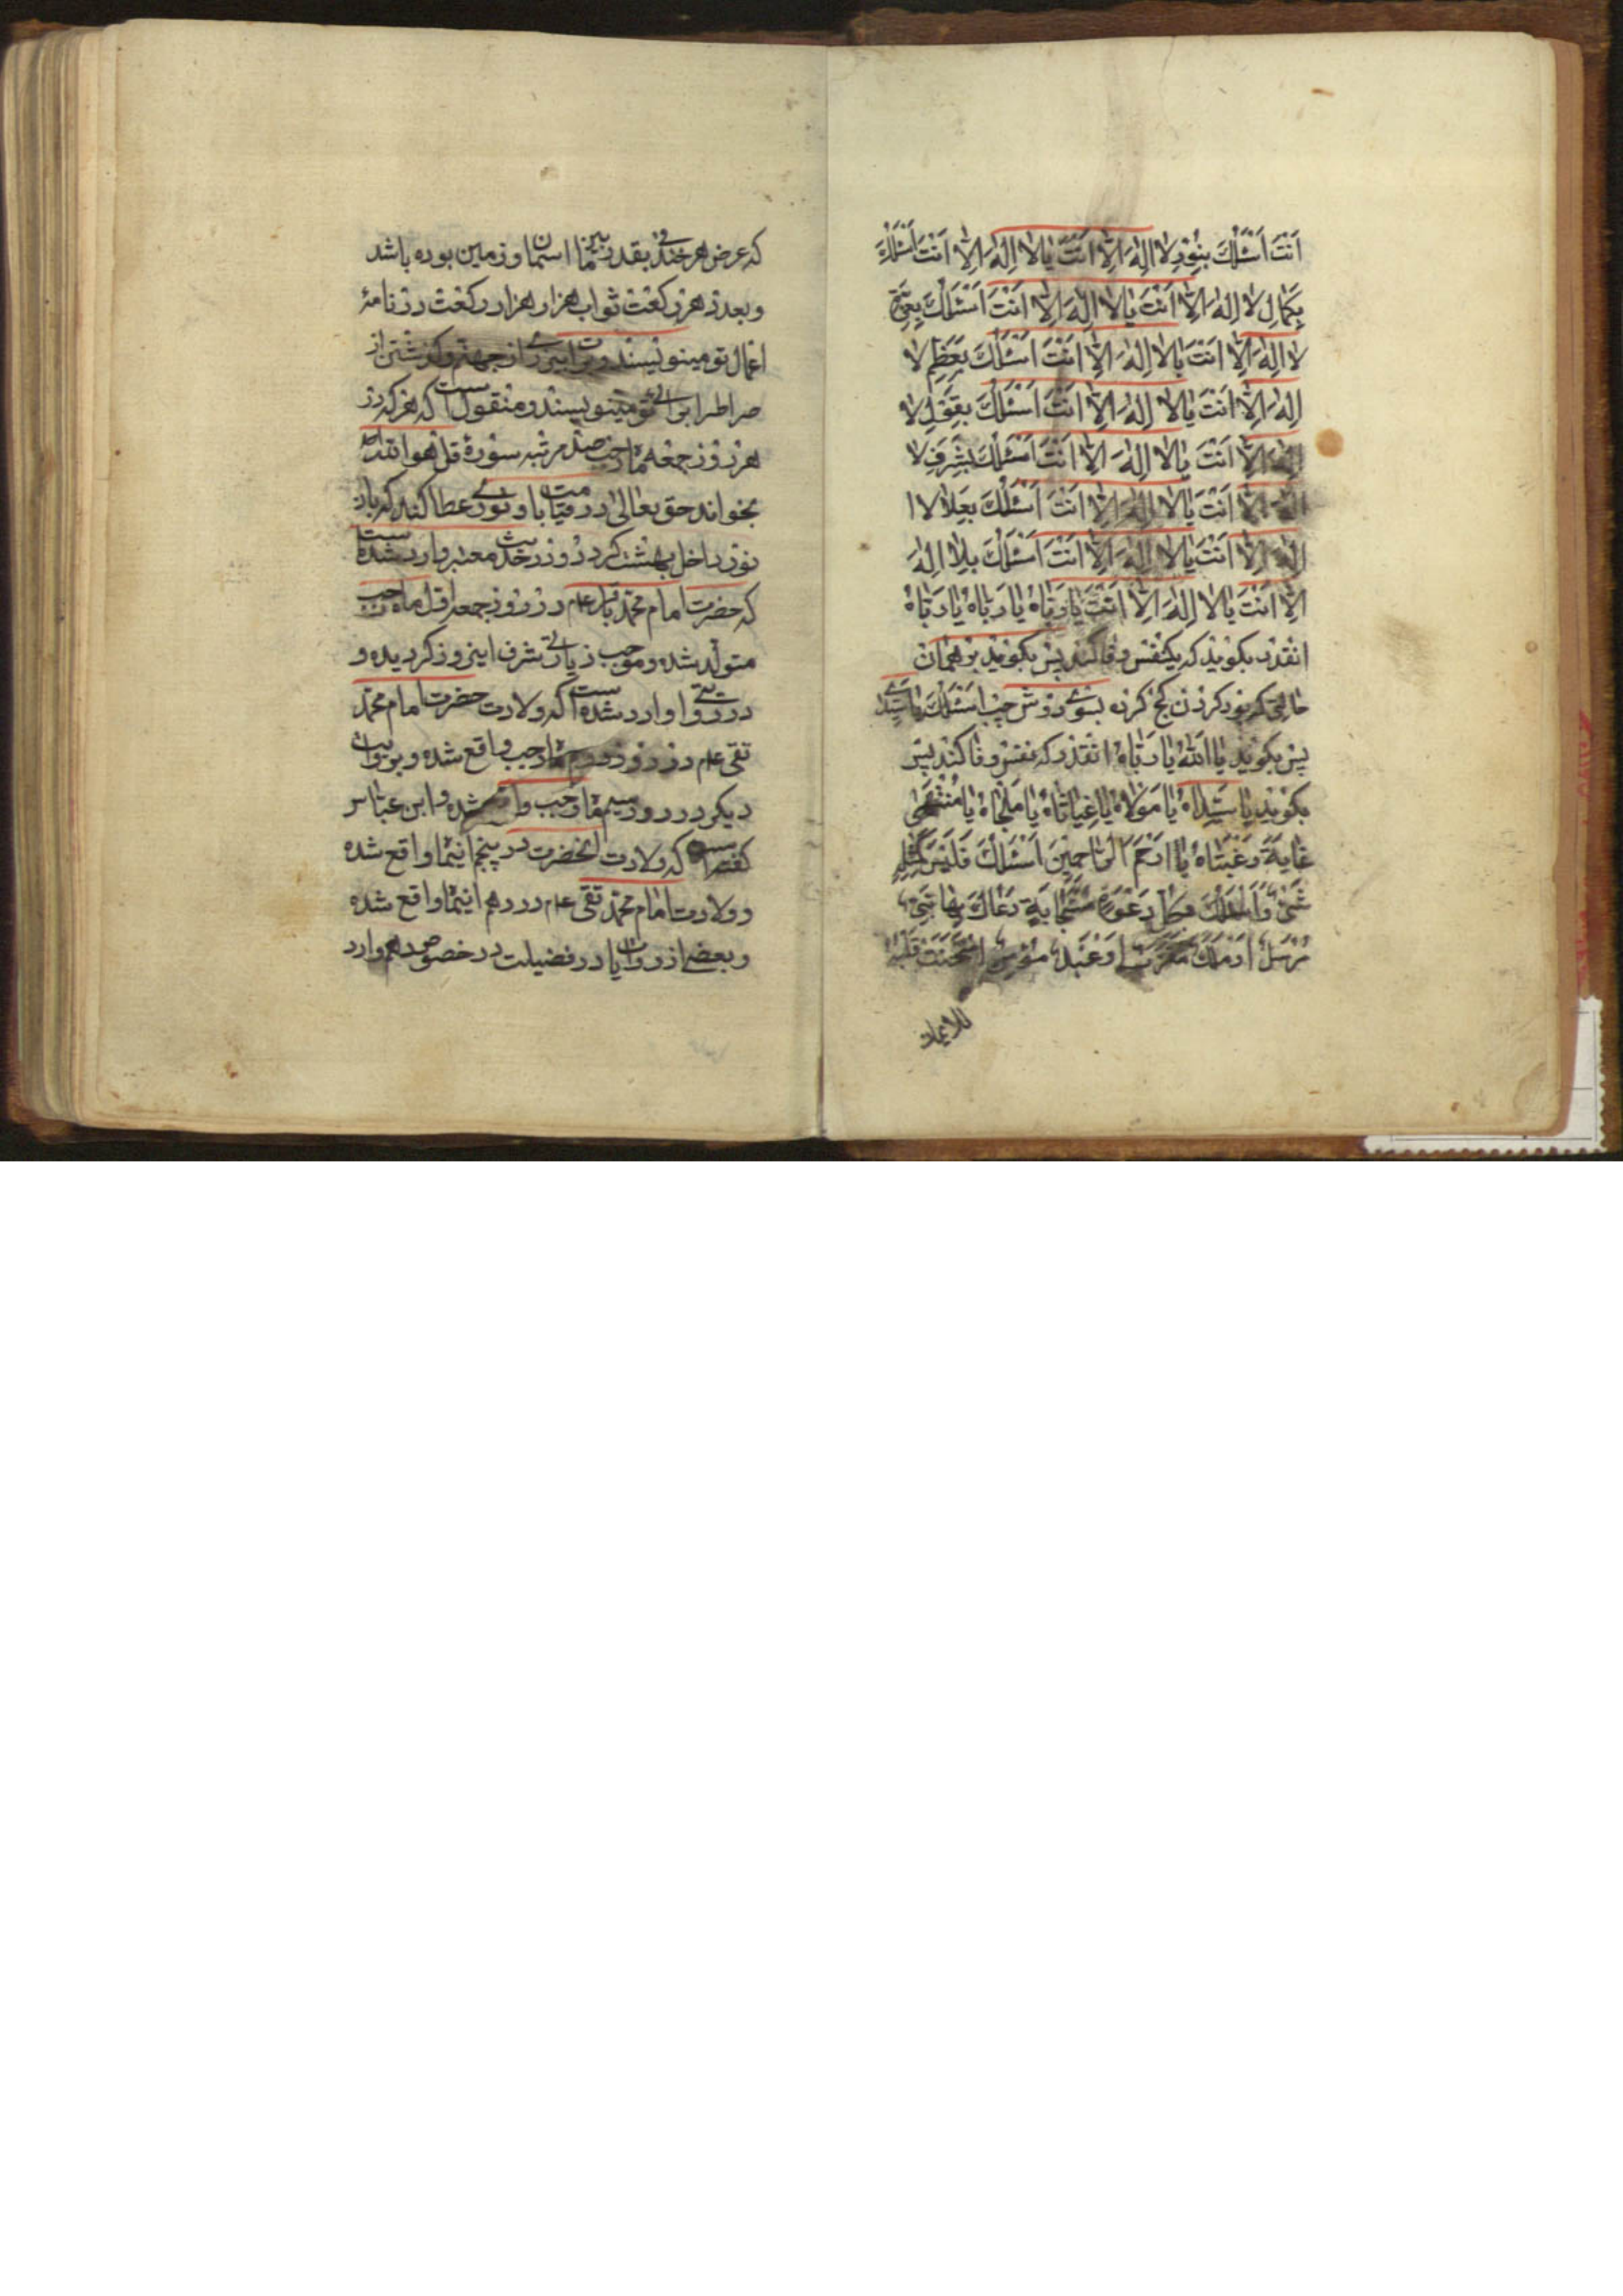 اَنْتَ اَسْئَلُكَ بِنُورِ لا اِلٰهَ اِلّا اَنْتَ يا لا اِلٰهَ اِلّا اَنْتَ اَسْئَلُكَ
بِكَمالِ لا اِلٰهَ اِلّا اَنْتَ يا لا اِلٰهَ اِلّا اَنْتَ اَسْئَلُكَ بِعِزَّةِ
لا اِلٰهَ اِلّا اَنْتَ يا لا اِلٰهَ اِلّا اَنْتَ اَسْئَلُكَ بِعَظِمِ لا
اِلٰهَ اِلّا اَنْتَ يا لا اِلٰهَ اِلّا اَنْتَ اَسْئَلُكَ بِقَوْلِ لا
اِلٰهَ اِلّا اَنْتَ يا لا اِلٰهَ اِلّا اَنْتَ اَسْئَلُكَ بِشَرَفِ لا
اِلٰهَ اِلّا اَنْتَ يا لا اِلٰهَ اِلّا اَنْتَ اَسْئَلُكَ بِعَلاءِ لا
اِلٰهَ اِلّا اَنْتَ يا لا اِلٰهَ اِلّا اَنْتَ اَسْئَلُكَ بِلا اِلٰهَ
اِلّا اَنْتَ يا لا اِلٰهَ اِلّا اَنْتَ يا رَبّاهُ يا رَباهُ يا رَبّاهُ
انقدر بكويند كه يكنفس وفا كند پس بكويند بر همان
حالتى كه بود كردن كج كرده بسوى دوش چپ اسئلك يا سيدى
پس بكويند يا اَللّٰهُ يا رَبّاهُ انقدر كه نفس وفا كند پس
بكويند يا سَيِّداهُ يا مَوْلاهُ يا غِياثاهُ يا مَلْجَاهُ يا مُنْتَهى
غايَةَ رَغْبَتاهُ يا اَرْحَمَ الرّاحِمينَ اَسْئَلُكَ فَلَيْسَ كَمِثْلِهِ
شَىْءٌ وَ اَسْئَلُكَ بِكُلِّ دَعْوَةٍ مُسْتَجابَةٍ دَعاكَ بِها نَبِىٌّ
مُرْسَلٌ اَوْ مَلَكٌ مُقَرَّبٌ اَوْ عَبْدٌ مُؤْمِنٌ امْتَحَنْتَ قَلْبَهُ
للايمان
كه عرض هر خندقى بقدر بين ما اسمان و زمين بوده باشد
و بعدد هر ركعت ثواب هزار هزار ركعت در نامهٔ
اعمال تو مينويسند و براتبيزارى از جهنم و كذشتن از
صراط را براى تو مينويسند و منقولست كه هر كه در
هر روز جمعه ماه رجب صد مرتبه سورهٔ قل هو الله احد
بخواند حق تعالى در قيامت باو نورى عطا كند كه بان
نور داخل بهشت كردد و در حديث معتبر وارد شده است
كه حضرت امام محمد باقر عم در روز جمعه اوّل ماه رجب
متولد شده و موجب زيادتى شرف اينروز كرديده و
در روايتى وارد شده است كه ولادت حضرت امام محمد
تقى عم در روز دوم ماه رجب واقع شده و بروايت
ديكر در روز سيم ماه رجب واقع شده و ابن عباس
كفته است كه ولادت انحضرت در پنجم اينماه واقع شده
و ولادت امام محمد تقى عم در دهم اينماه واقع شده
و بعضى از روايات در فضيلت در خصوص دهم وارد